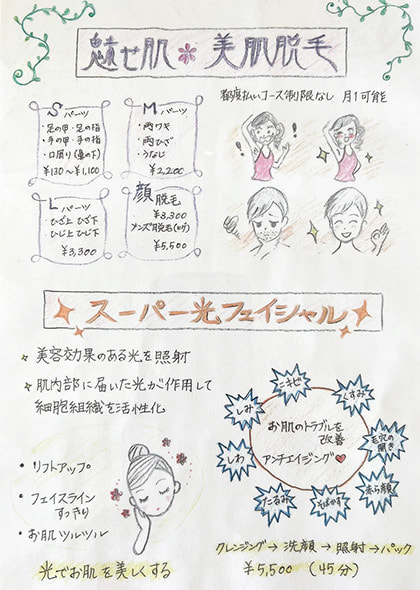 魅せ肌＊美肌脱毛
都度払いコース制限なし 月1可能
Sパーツ
・足の甲・足の指
・手の甲・手の指
・口周り(鼻の下)
¥130～¥1,100
Mパーツ
・両ワキ
・両ひざ
・うなじ
¥2,200
Lパーツ
・ひざ上 ひざ下
・ひじ上 ひじ下
¥3,300
顔脱毛
¥3,300
メンズ脱毛(ヒゲ)
¥5,500
スーパー光フェイシャル
美容効果のある光を照射
肌内部に届いた光が作用して
細胞組織を活性化
・リフトアップ
・フェイスライン
すっきり
・お肌ツルツル
光でお肌を美しくする
ニキビ
くすみ
毛穴の
開き
赤ら顔
そばかす
たるみ
しわ
しみ
お肌のトラブルを
改善
アンチエイジング♥
クレンジング→洗顔→照射→パック
¥5,500 (45分)